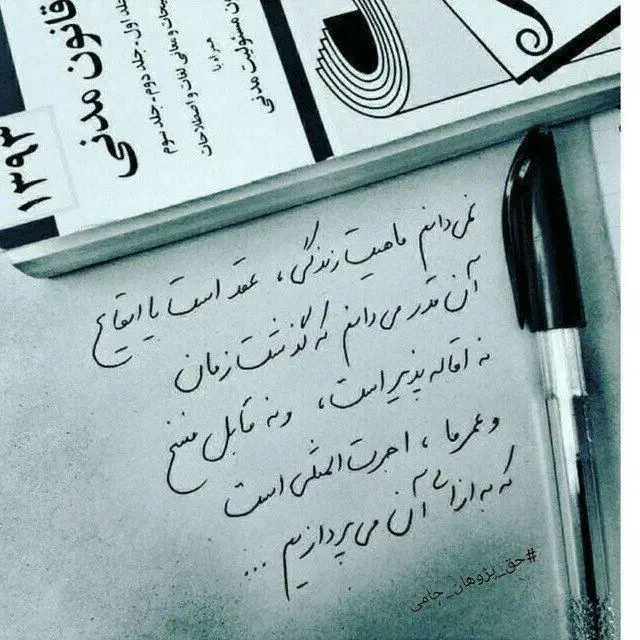 قانون مدنی
جلد اول - جلد دوم - جلد سوم
و معانی لغات و اصطلاحات
همراه با
مسئولیت مدنی
۱۳۹۳
نمی دانم ماهیت زندگی، عقد است یا ایقاع
آن قدر می دانم که گذشت زمان
نه اقاله پذیر است، ونه قابل فسخ
وعمر ما، اجرت المثلی است
که به ازاء آن می پردازیم ...
#حق_پژوهان_جامی